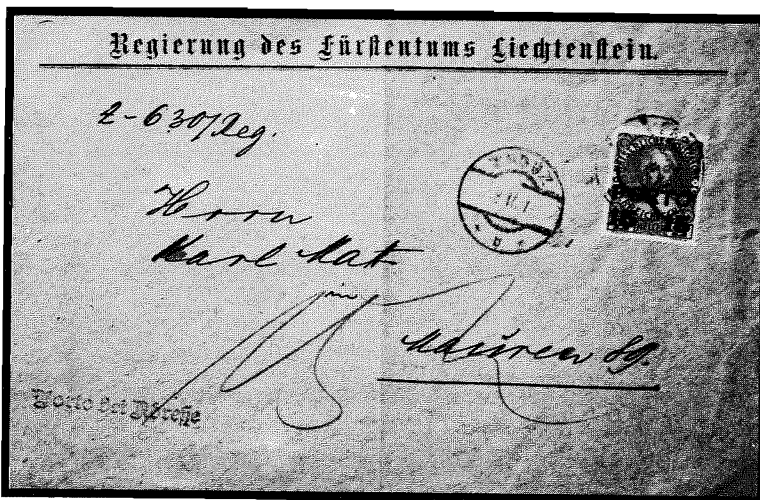 Regierung des Fürstentums Liechtenstein.
Z-630/Reg.
VADUZ
Herrn
Karl Mat
in
Mauren
Porto bei Adresse